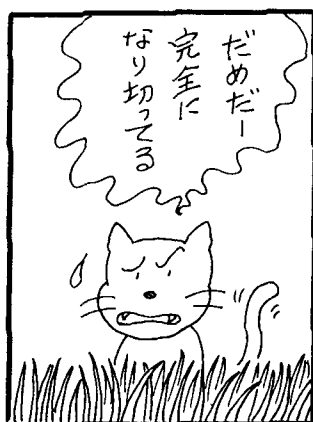 だめだー
完全に
なり切ってる